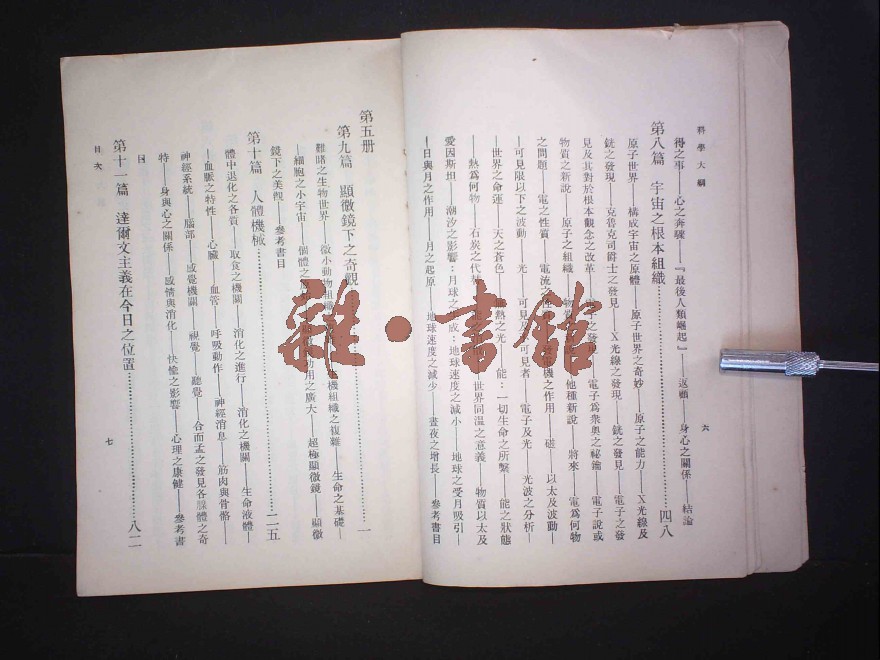 科學大綱
六
得之事——心之奔驟——『最後人類崛起』——返顧——身心之關係——結論
第八篇　宇宙之根本組織……四八
原子世界——構成宇宙之原體——原子世界之奇妙——原子之能力——X光線及
銧之發現——克魯克司爵士之發見——X光線之發現——銧之發見——電子之發
見及其對於根本觀念之改革——子之發現——電子爲衆奥之祕鑰——電子說或
物質之新說——原子之組織——物質——他種新說——將來——電爲何物
之問題——電之性質——電流之——機之作用——磁——以太及波動——
——可見限以下之波動——光——可見及不可見者——電子及光——光波之分析——
——世界之命運——天之蒼色——熱之光——能：一切生命之所繫——能之狀態
——熱爲何物——石炭之代——世界同溫之意義——物質以太及
愛因斯坦——潮汐之影響：月球之成：地球速度之減小——地球之受月吸引——
——日與月之作用——月之起原——地球速度之減少——晝夜之增長——參考書目
第五册
第九篇　顯微鏡下之奇觀……一
難睹之生物世界——微小動物組織——機組織之複雜——生命之基礎——
——細胞之小宇宙——個體之——功用之廣大——超極顯微鏡——顯微
鏡下之美觀——參考書目
第十篇　人體機械……二五
體中退化之各質——取食之機關——消化之進行——消化之機關——生命液體——
——血脈之特性——心臟——血管——呼吸動作——神經消息——筋肉與骨骼——
神經系統——腦部——感覺機關——視覺——聽覺——合而孟之發見各腺體之奇
特——身與心之關係——感情與消化——快愉之影響——心理之康健——參考書
目
第十一篇　達爾文主義在今日之位置……八二
目次
七
雜·書館